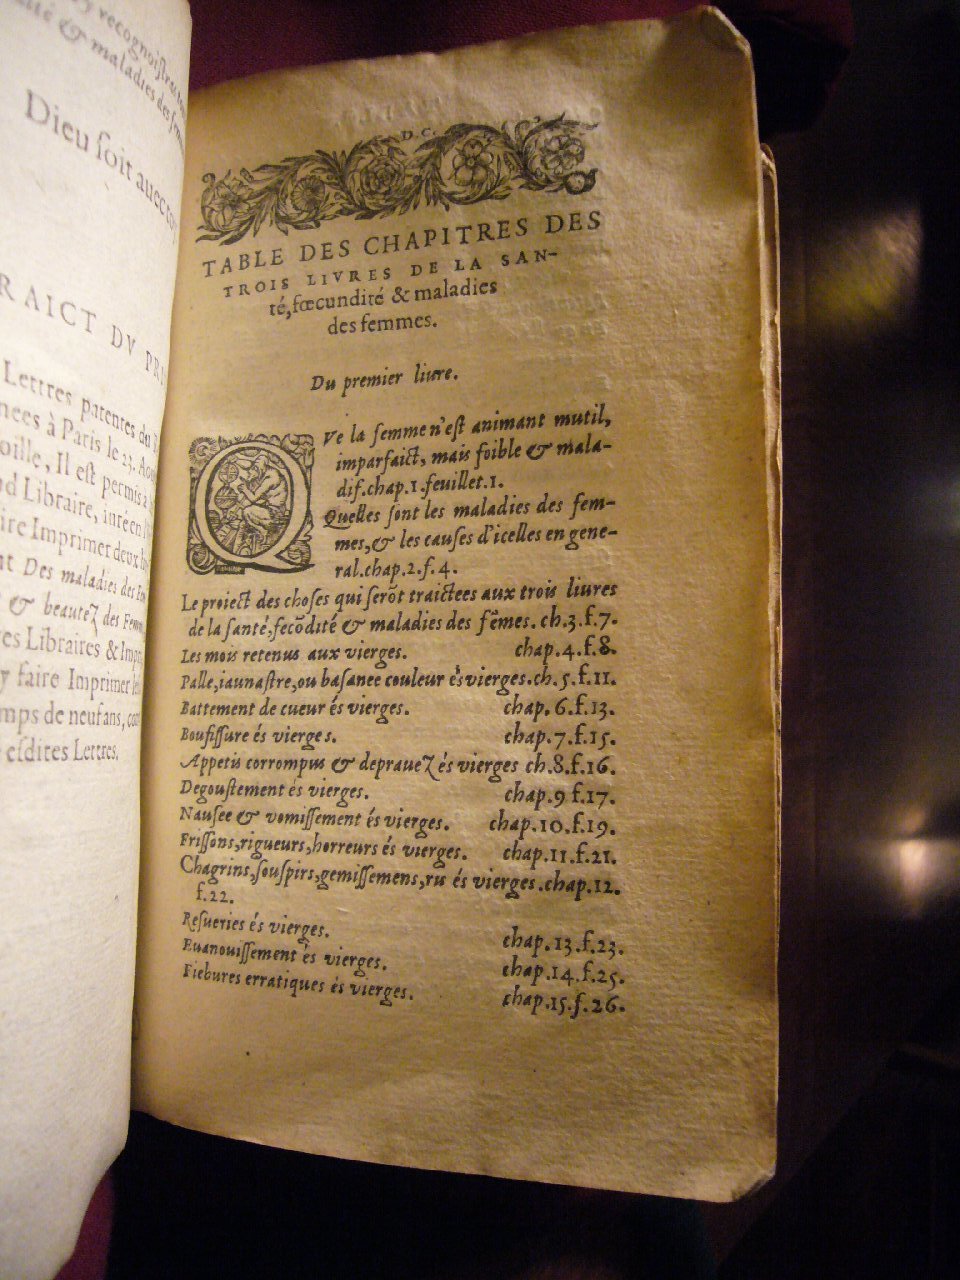 recognoistra
& maladies des
Dieu soit auec
RAICT DV PR
Lettres patentes du
à Paris le 23.
Il est permis
Libraire, iuré en
Imprimer deux
Des maladies des
& beautez des
Libraires &
y faire Imprimer
de neuf ans,
esdites Lettres.
D.C.
TABLE DES CHAPITRES DES
TROIS LIVRES DE LA SAN-
té, fœcundité & maladies
des femmes.
Du premier liure.
QVe la femme n'est animant mutil,
imparfaict, mais foible & mala-
dif.chap.1.feuillet.1.
Quelles sont les maladies des fem-
mes,& les causes d'icelles en gene-
ral.chap.2.f.4.
Le proiect des choses qui serõt traictees aux trois liures
de la santé,fecõdité & maladies des fẽmes.ch.3.f.7.
Les mois retenus aux vierges. chap.4.f.8.
Palle,iaunastre,ou basanee couleur és vierges.ch.5.f.11.
Battement de cueur és vierges. chap.6.f.13.
Boufissure és vierges. chap.7.f.15.
Appetis corrompus & deprauez és vierges ch.8.f.16.
Degoustement és vierges. chap.9 f.17.
Nausee & vomissement és vierges. chap.10.f.19.
Frissons,rigueurs,horreurs és vierges. chap.11.f.21.
Chagrins,souspirs,gemissemens,ris és vierges.chap.12.
f.22.
Resueries és vierges. chap.13.f.23.
Euanouissement és vierges. chap.14.f.25.
Fiebures erratiques és vierges. chap.15.f.26.